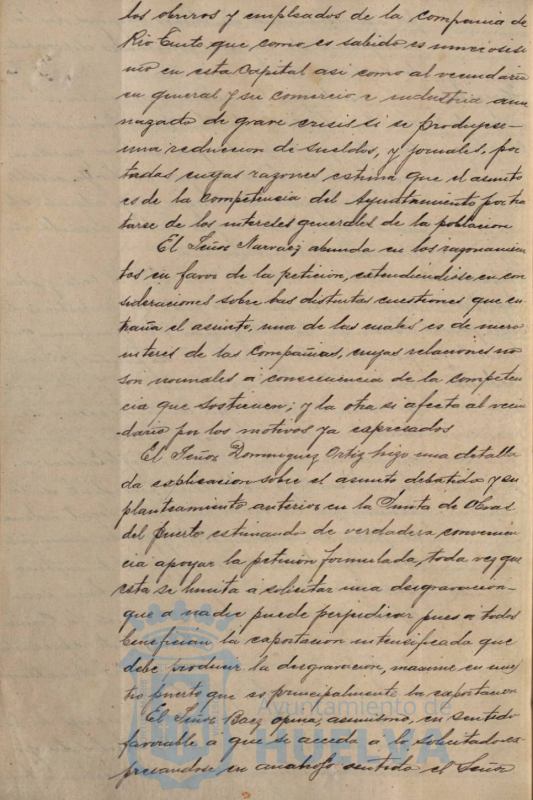 los obreros y empleados de la compañia de
Rio Tinto que como es sabido es numerosisi
mo en esta Capital asi como al vecindario
en general y su comercio e industria ame
nazado de grave crisis si se produjese
una reduccion de sueldos, y jornales, por
todas cuyas razones estima que el asunto
es de la competencia del Ayuntamiento por tra
tarse de los intereses generales de la poblacion
El Señor Narvaez abunda en los razonamien
tos en favor de la peticion, extendiendose en con
sideraciones sobre las distintas cuestiones que en
traña el asunto, una de las cuales es de mero
interes de las Compañias, cuyas relaciones no
son normales a consecuencia de la competen
cia que sostienen; y la otra si afecta al vecin
dario por los motivos ya expresados
El Señor Dominguez Ortiz hizo una detalla
da explicacion sobre el asunto debatido y su
planteamiento anterior en la Junta de Obras
del Puerto estimando de verdadera convenien
cia apoyar la peticion formulada, toda vez que
esta se limita a solicitar una desgravacion
que a nadie puede perjudicar pues a todos
beneficia la exportacion intensificada que
debe producir la desgravacion, maxime en nues
tro puerto que es principalmente la exportacion
El Señor Baez opina, asimismo, en sentido
favorable a que se acceda a lo solicitado ex
presandose en analogo sentido el Señor
Ayuntamiento de
HUELVA